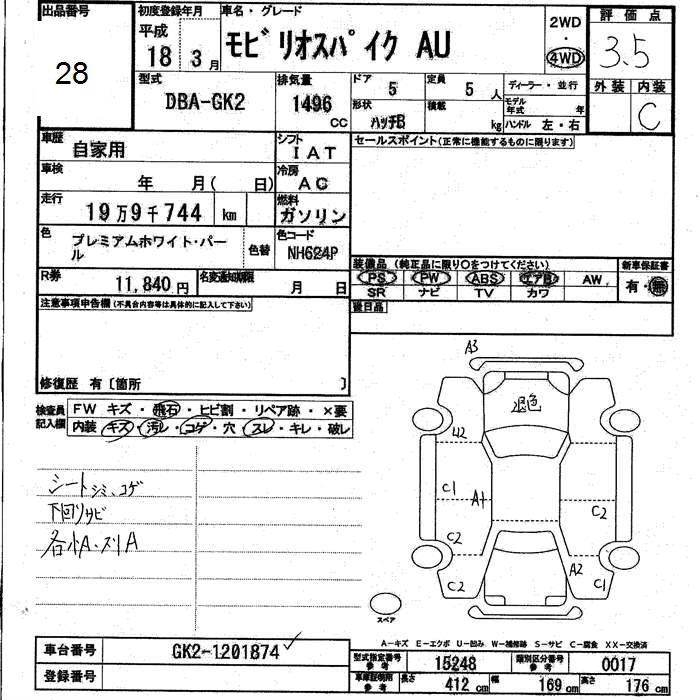 出品番号
28
初度登録年月
平成
18 3月
車名・グレード
モビリオスパイク AU
2WD
・
4WD
評価点
3.5
外装 内装
C
型式
DBA-GK2
排気量
1496
CC
ドア
5
定員
5 人
形状
ハッチB
積載
kg
ディーラー・並行
モデル年式 年
ハンドル 左・右
車歴
自家用
シフト
IAT
車検
年 月( 日)
冷房
AC
走行
19万9千744 km
燃料
ガソリン
色
プレミアムホワイト・パール
色替
色コード
NH624P
R券
11,840円
名変通知期限
月 日
セールスポイント(正常に機能するものに限ります)
装備品 (純正品に限り○をつけてください)
PS PW ABS エアB AW
SR ナビ TV カワ
新車保証書
有・無
後日品
注意事項申告欄(不具合内容等は具体的に記入して下さい)
修復歴 有〔箇所 〕
検査員記入欄
FW キズ・飛石・ヒビ割・リペア跡・×要
内装・キズ・汚レ・コゲ・穴・スレ・キレ・破レ
シートシミ、コゲ
下回りサビ
各小A・スリA
A3
退色
U2
C1
A1
C2
C2
C2
A2
C1
スペア
A-キズ E-エクボ U-凹み W-補修跡 S-サビ C-腐食 XX-交換済
車台番号
GK2-1201874
登録番号
型式指定番号
参考
15248
類別区分番号
参考
0017
車庫証明用
参考
長さ
412 cm
幅
169 cm
高さ
176 cm